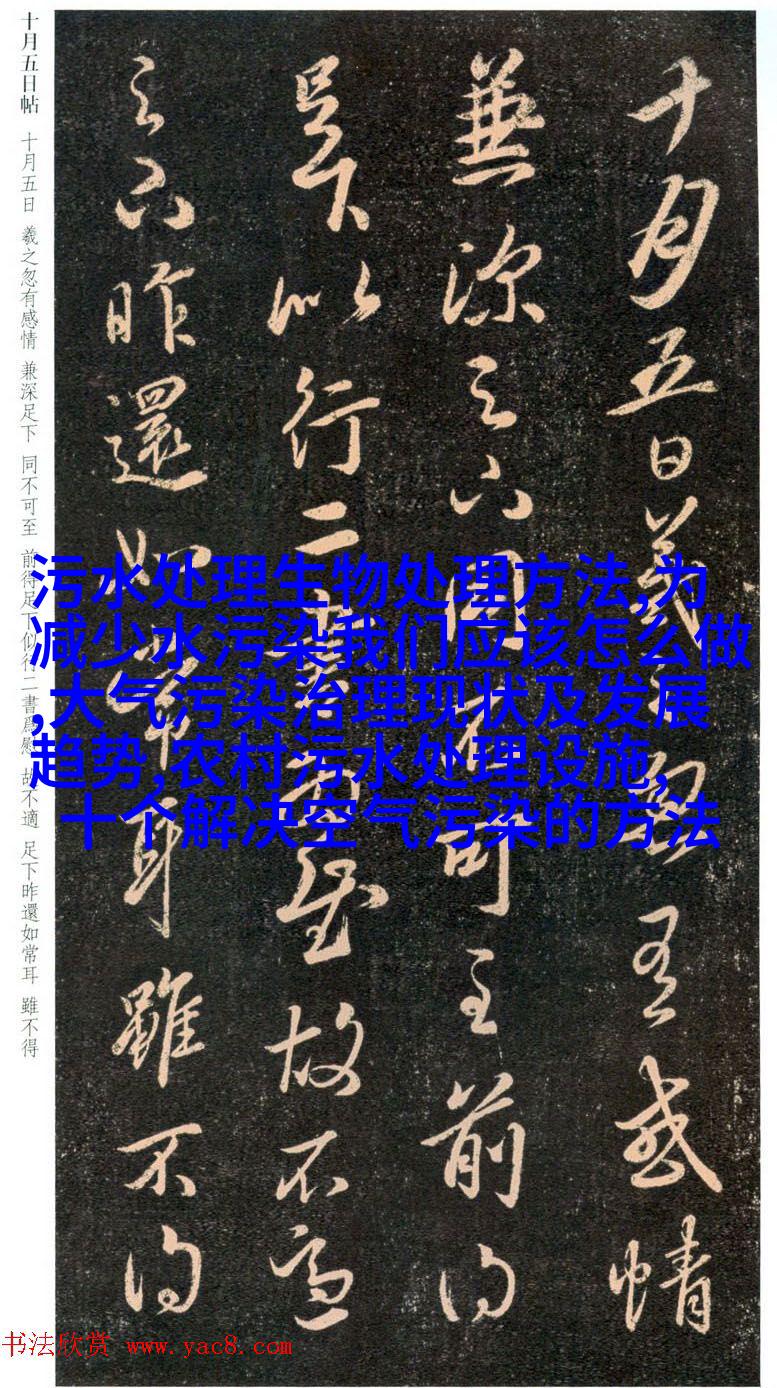 十月五日帖 十月五日 羲之忽有感情 兼深足下 同不可至 前得足下似行二書為慰 故不適 足下昨還如常耳 雖不得
十月五日羲之忽有感情
兼深足下同不可至前得
足下似行二書為慰故不適
足下昨還如常耳雖不得
污水处理生物处理方法,为
减少水污染我们应该怎么做
,大气污染治理现状及发展
趋势,农村污水处理设施,
十个解决空气污染的方法
书法欣赏 www.yac8.com